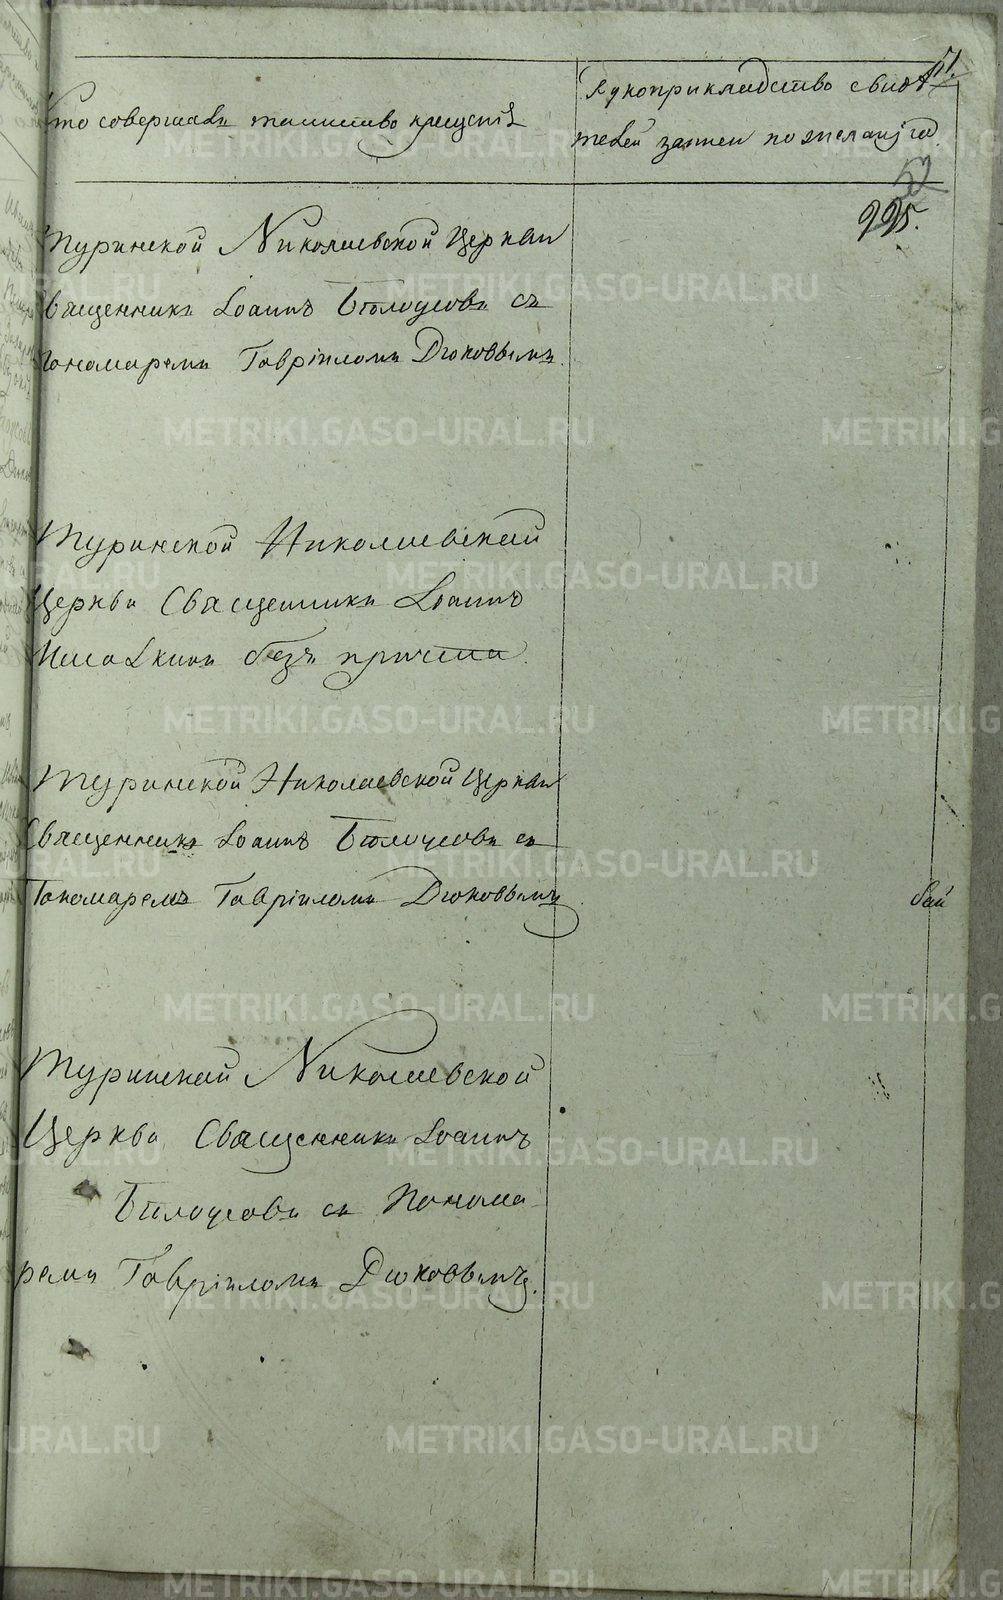 Кто совершалъ таинство крещенія
Рукоприкладство свидѣ
телей записи по желанію
51.
52
225.
Туринской Николаевской Церкви
Священникъ Іоаннъ Бѣлоусовъ съ
Пономаремъ Гавріиломъ Дюковымъ.
Туринской Николаевской
Церкви Священникъ Іоаннъ
безъ причта.
Туринской Николаевской Церкви
Священникъ Іоаннъ Бѣлоусовъ съ
Пономаремъ Гавріиломъ Дюковымъ
бай
Туринской Николаевской
Церкви Священникъ Іоаннъ
Бѣлоусовъ съ Понома
ремъ Гавріиломъ Дюковымъ.
METRIKI.GASO-URAL.RU